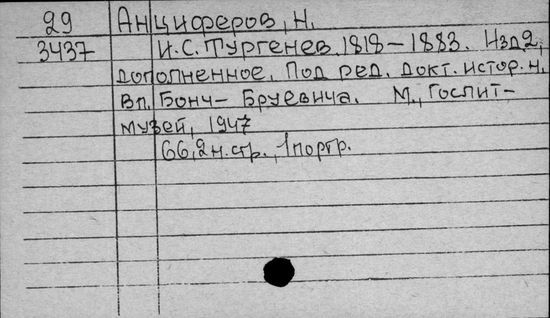 29 Анциферов, Н.
3437 И.С. Тургенев 1818 – 1883. Изд 2,
дополненное. Под ред. докт. истор. н.
Вл. Бонч – Бруевича. М., Гослит-
музей, 1947
66, 2 н. стр., 1 портр.